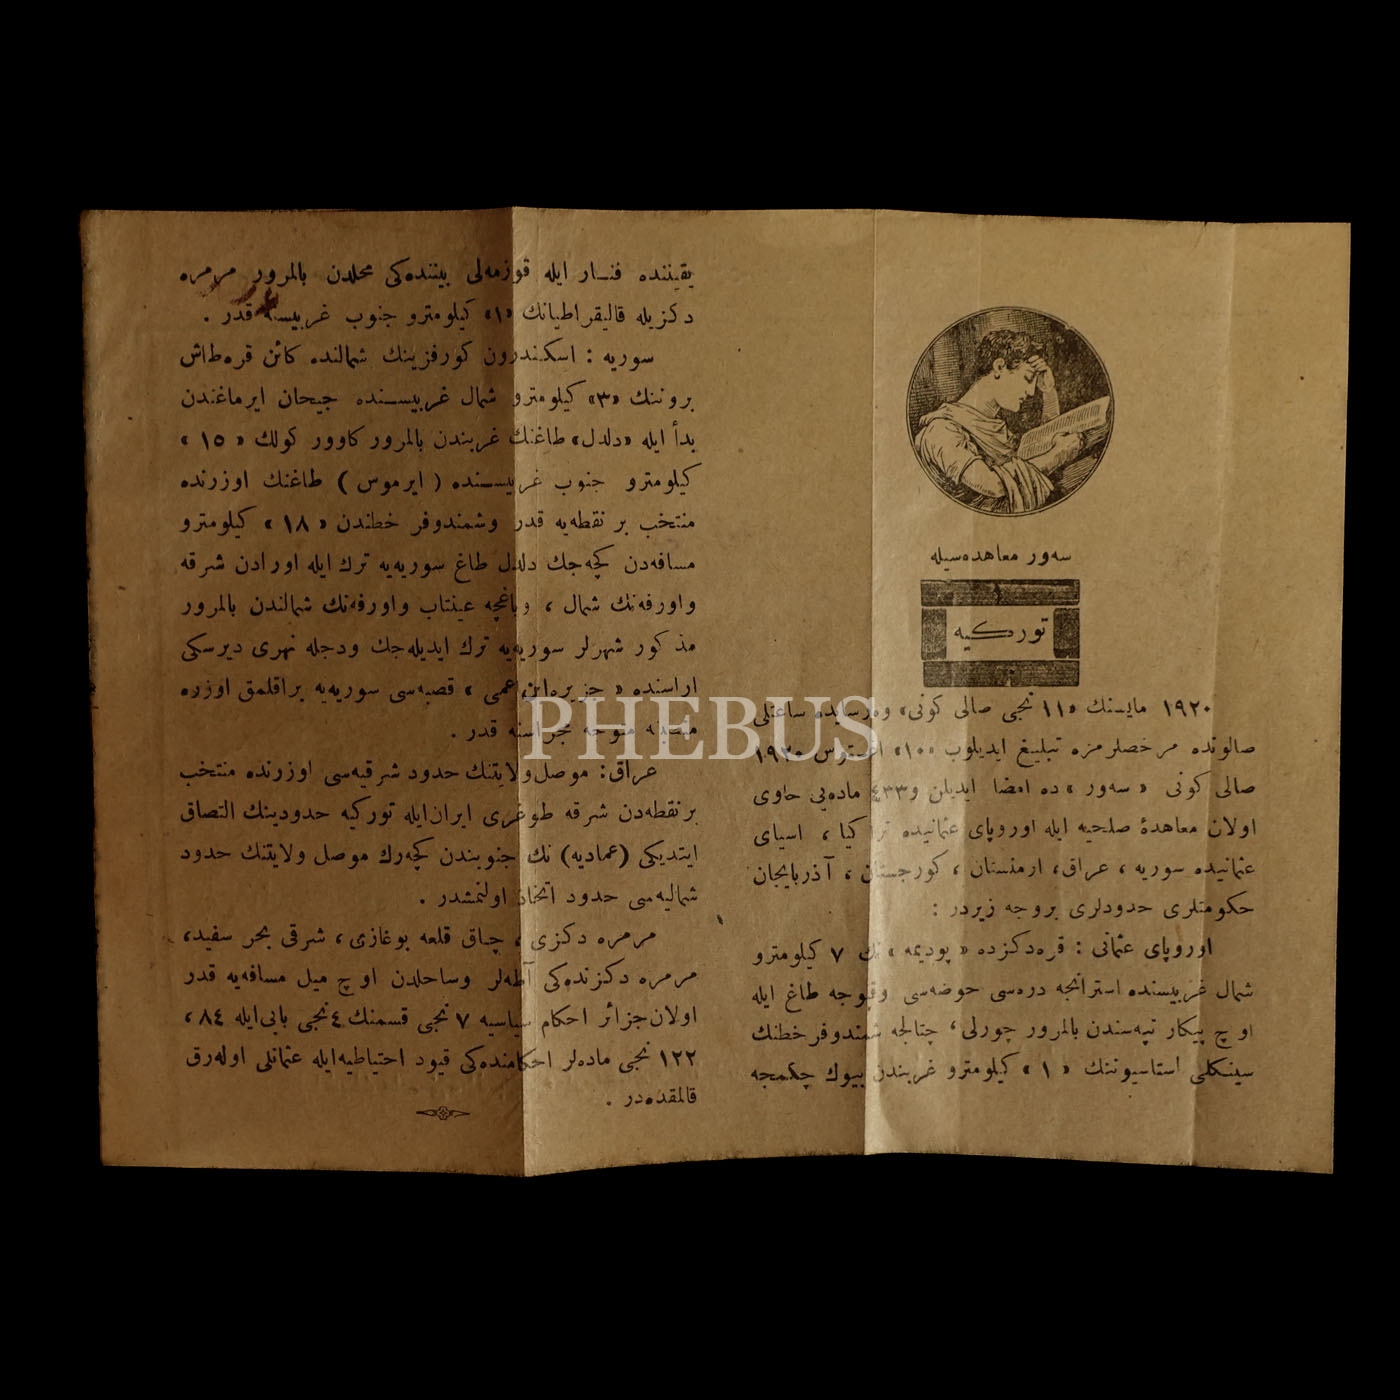 سەور معاهده‌سیله
توركیه
١٩٢٠ مایسنك «١١ نجی صالی كونی» وەرسایده ساعتلی
صالونده مرخصلرمزه تبلیغ ایدیلوب «١٠» اغستوس ١٩٢٠
صالی كونی « سەور » ده امضا ایدیلن و ٤٣٣ ماده‌یی حاوی
اولان معاهدهٔ صلحیه ایله اوروپای عثمانیده تراكیا ، اسیای
عثمانیده سوریه ، عراق، ارمنستان ، كورجستان ، آذربایجان
حكومتلری حدودلری بروجه زیردر :
اوروپای عثمانی : قره‌دكزده « پودیمه » نك ٧ كیلومترو
شمال غربیسنده استرانجه دره‌سی حوضه‌سی وقوجه طاغ ایله
اوچ پیكار تپه‌سندن بالمرور چورلی، چتالجه شمندوفر خطنك
سینكلی استاسیوننك « ١ » كیلومترو غربندن بیوك چكمجه
یقیننده فنـار ایله قوزمه‌لی بیننده‌كی محلدن بالمرور مرمره
دكزیله قالیقراطیانك «١» كیلومترو جنوب غربیسنه قدر .
سوریه : اسكندرون كورفزینك شمالنده كائن قره‌طاش
بروننك «٣» كیلومترو شمال غربیسـنده جیحان ایرماغندن
بدأ ایله «دلدل» طاغنك غربندن بالمرور كاوور كولك « ١٥ »
كیلومترو جنوب غربیسـنده ( ایرموس ) طاغنك اوزرنده
منتخب بر نقطه‌یه قدر وشمندوفر خطندن « ١٨ » كیلومترو
مسافه‌دن كچه‌جك دلدل طاغ سوریه‌یه ترك ایله اورادن شرقه
واورفه‌نك شمال ، وباغچه عینتاب واورفه‌نك شمالندن بالمرور
مذكور شهرلر سوریه‌یه ترك ایدیله‌جك ودجله نهری دیرسكی
اراسنده « جزیره‌ابن‌عمی » قصبه‌سی سوریه‌یه براقلمق اوزره
متوجه مجراسنه قدر .
عراق: موصل‌ولایتنك حدود شرقیه‌سی اوزرنده منتخب
برنقطه‌دن شرقه طوغری ایران‌ایله توركیه حدودینك التصاق
ایتدیكی (عمادیه) نك جنوبندن كچه‌رك موصل ولایتنك حدود
شمالیه‌سی حدود اتخاذ اولنمشدر .
مرمره دكزی ، چناق قلعه بوغازی ، شرقی بحر سفید،
مرمره دكزنده‌كی آطه‌لر وساحلدن اوچ میل مسافه‌یه قدر
اولان‌جزائر احكام سیاسیه ٧ نجی قسمنك ٤ نجی بابی‌ایله ٨٤ ،
١٢٢ نجی ماده‌لر احكامنده‌كی قیود احتیاطیه‌ایله عثمانلی اوله‌رق
قالمقده‌در .
PHEBUS